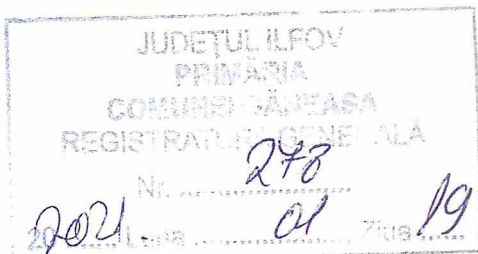 JUDEȚUL ILFOV
PRIMĂRIA
COMUNEI GĂNEASA
REGISTRATURA GENERALĂ
Nr. 278
2021. Luna 01 Ziua 19